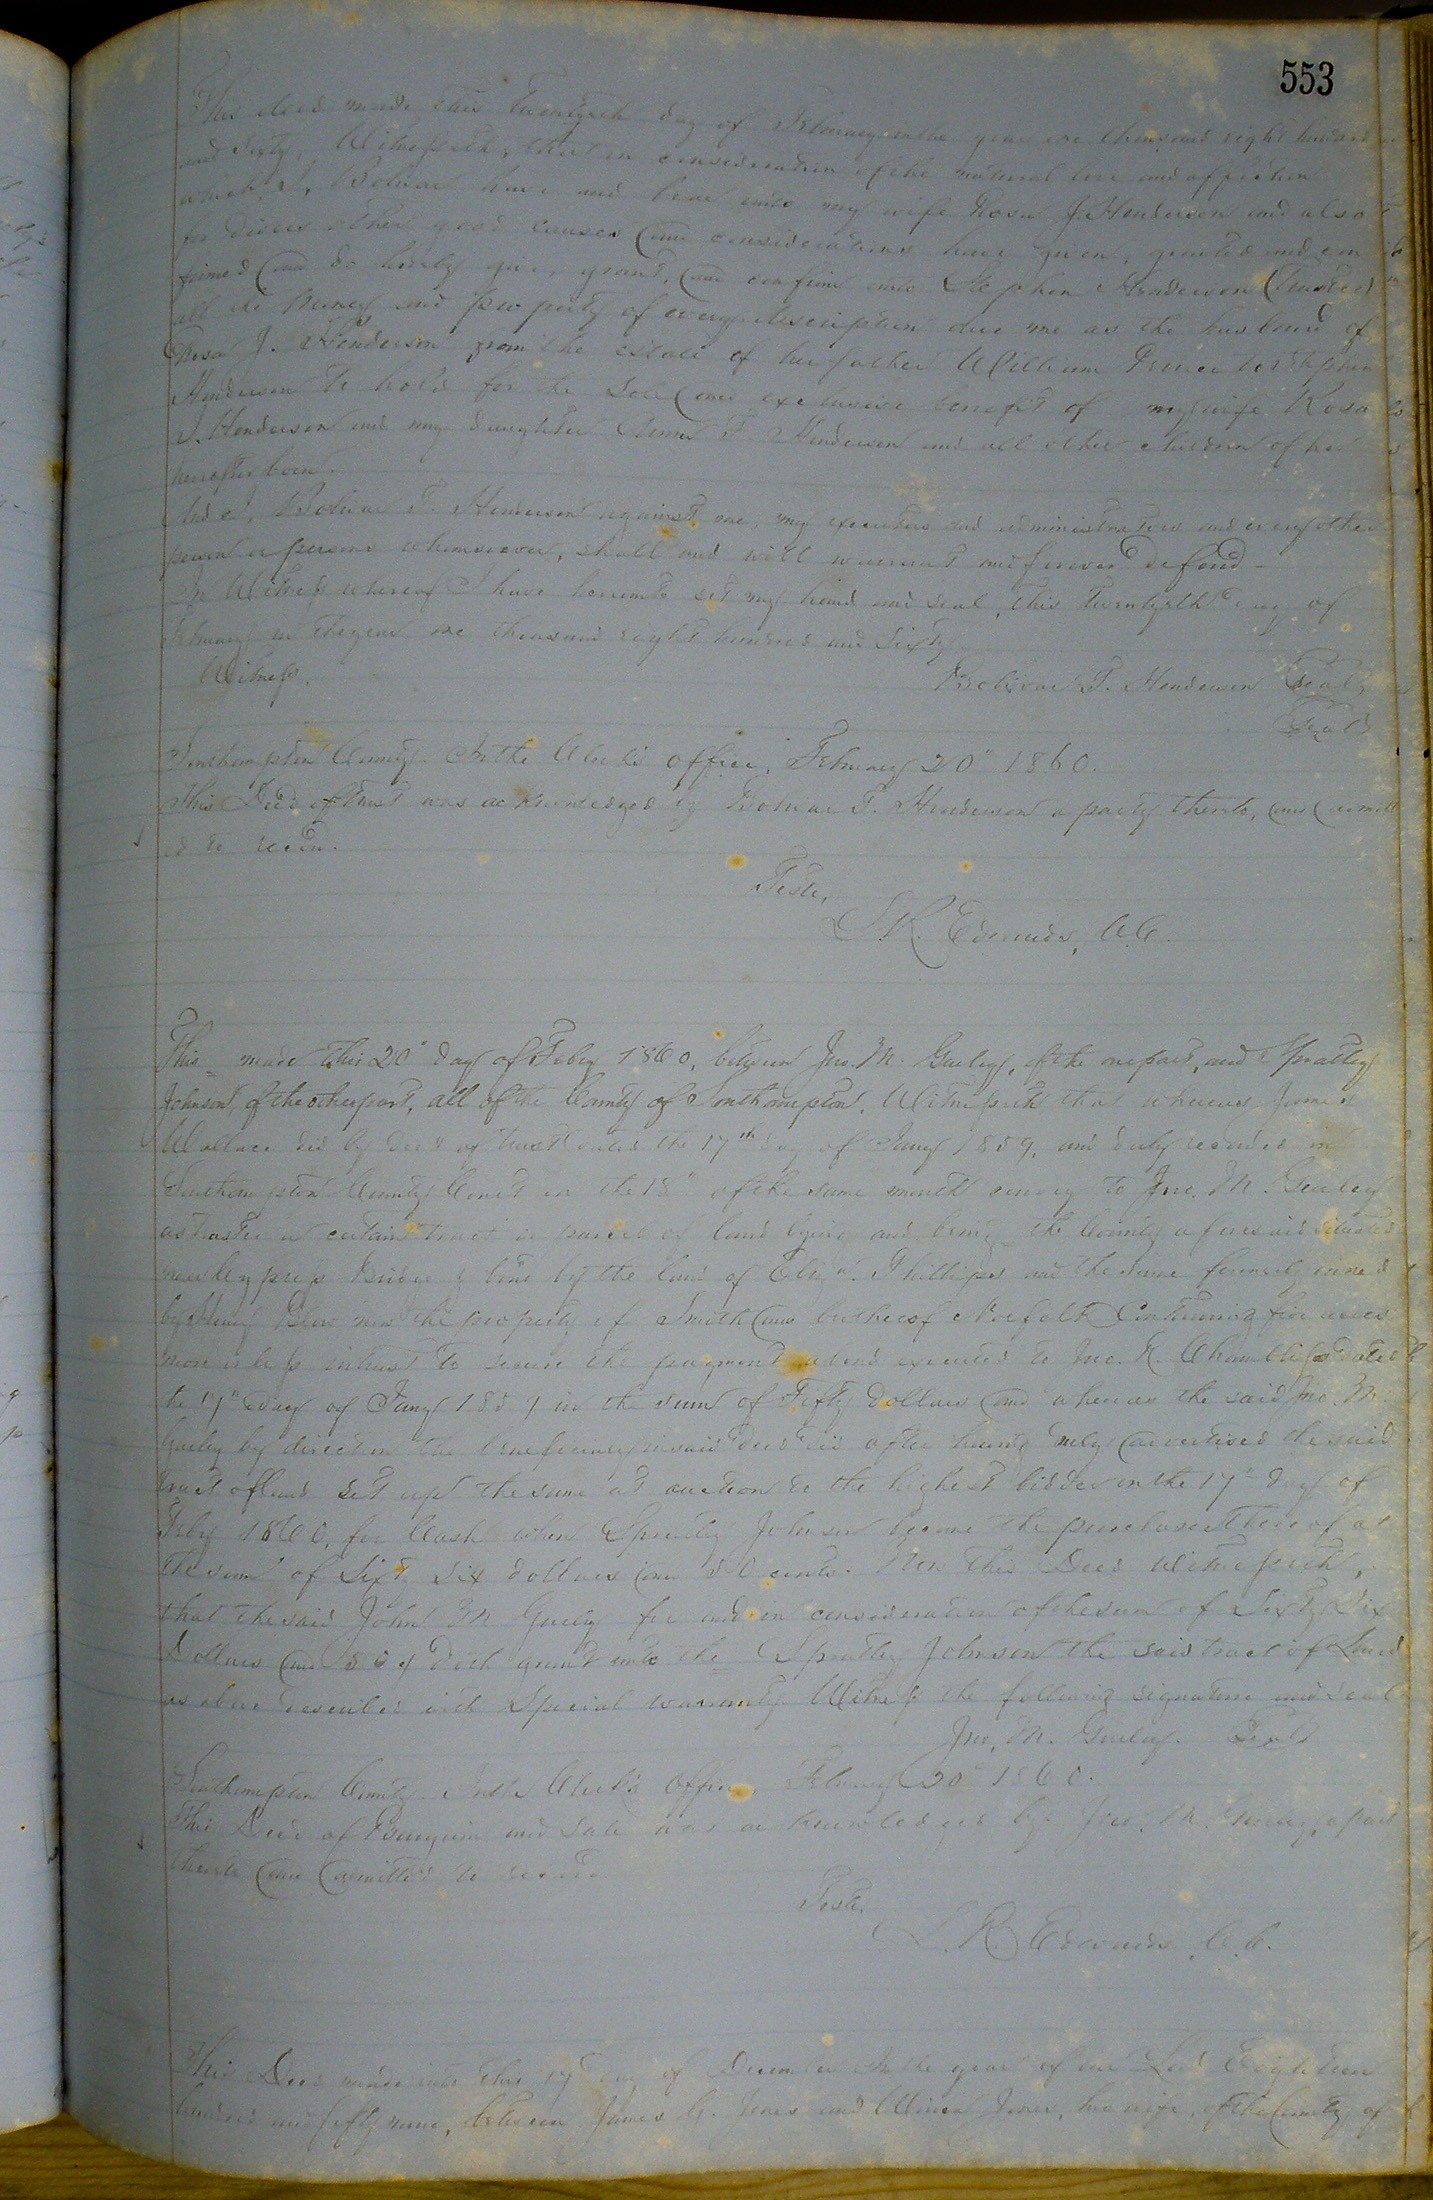 553
This deed made this Twentyeth day of February in the year one thousand eight hundred
and Sixty, Witnesseth, that in consideration of the natural love and affection
which I, Bolivar have and bear unto my wife Rosa J. Henderson and also
for divers other good causes and considerations have given, granted and con
firmed and do hereby give, grant, and confirm unto Stephen Henderson (Trustee)
all the money and property of every description due me as the husband of
Rosa J. Henderson from the estate of her father William to Stephen
Henderson to hold for the sole and exclusive benefit of my wife Rosa
J. Henderson and my daughter F. Henderson and all other children of her
hereafter born.
And I, Bolivar F. Henderson against me, my executors and administrators and every other
person or persons whomsoever, shall and will warrant and forever defend -
In Witness whereof I have hereunto set my hand and seal, this Twentyeth day of
February in the year one thousand eight hundred and Sixty
Witness. Bolivar F. Henderson Seal
Seal
Southampton County. In the Clerk's office, February 20" 1860.
This Deed of Trust was acknowledged by Bolivar F. Henderson a party thereto, and admitt
ed to record.
Teste,
L.R. Edwards, C.C.
This = made this 20" day of Feby 1860, between Jno. M. Gurley, of the one part, and Spratley
Johnson, of the other part, all of the County of Southampton. Witnesseth that whereas James
Wallace did by deed of trust dated the 17th day of Jany 1859, and duly recorded in
Southampton County Court on the 18" of the same month convey to Jno. M. Gurley
as trustee a certain tract or parcel of land lying and being the County aforesaid situated
near Cypress Bridge & bond by the land of Phillips and the same formerly owned
by Henry Blow now the property of Smith and brother of Norfolk Containing five acres
more or less in trust to secure the payment a bond executed to Jno. R. Chambliss dated
the 17" day of Jany 1859 in the sum of Fifty Dollars and whereas the said Jno. M.
Gurley by direction the beneficiary in said deed did after having duly advertised the said
tract of land set up the same at auction to the highest bidder on the 17" day of
Feby 1860, for Cash when Spratley Johnson became the purchaser thereof at
the sum of Sixty Six dollars and 50 cents. Now this Deed Witnesseth,
that the said John M Gurley for and in consideration of the sum of Sixty Six
Dollars and 50 ¢ doth grant unto the = Spratley Johnson the said tract of Land
as above described with Special warranty. Witness the following signature and seal
Jno. M. Gurley. Seal
Southampton County. In the Clerk's Office, February 20" 1860.
This Deed of Bargain and Sale was acknowledged by Jno. M. Gurley, a part
thereto and admitted to record.
Teste,
L. R. Edwards, C.C.
This Deed made into this 17" day of December In the year of our Lord Eighteen
hundred and fifty nine, between James G. Jones and Jones, his wife, of the County of